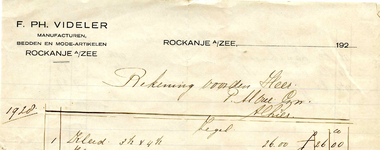 F. PH. VIDELER
MANUFACTUREN,
BEDDEN EN MODE-ARTIKELEN
ROCKANJE A/ZEE
ROCKANJE A/ZEE, 192
Rekening voor den Heer
P.
Alhier
1928
Zegel
1 Kleed 3½ x 4½ 26.00 ƒ 26 00